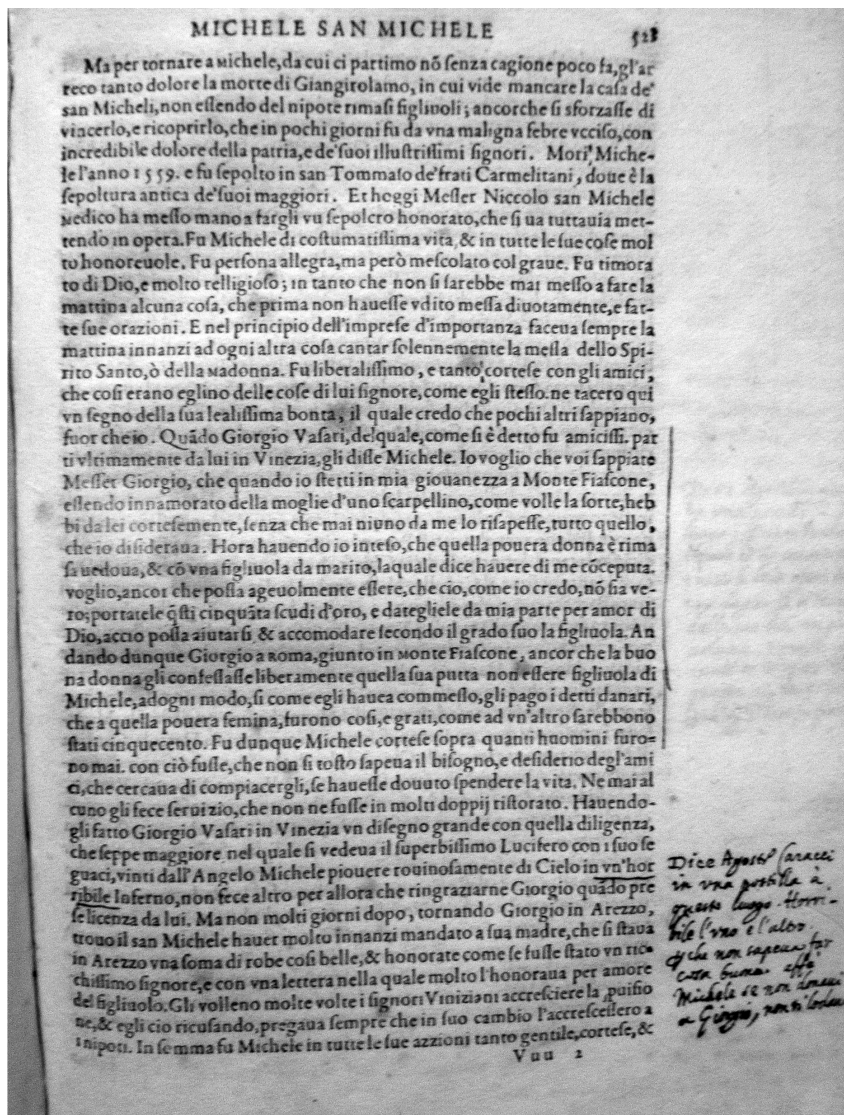 MICHELE SAN MICHELE
523
Ma per tornare a Michele, da cui ci partimo nõ senza cagione poco fa, gl'ar
reco tanto dolore la morte di Giangirolamo, in cui vide mancare la casa de'
san Micheli, non essendo del nipote rimasi figliuoli; ancorche si sforzasse di
vincerlo, e ricoprirlo, che in pochi giorni fu da vna maligna febre vcciso, con
incredibile dolore della patria, e de' suoi illustrissimi signori. Morì Miche-
le l'anno 1559. e fu sepolto in san Tommaso de' frati Carmelitani, doue è la
sepoltura antica de' suoi maggiori. Et hoggi Messer Niccolo san Michele
Medico ha messo mano a fargli vu sepolcro honorato, che si ua tuttauia met-
tendo in opera. Fu Michele di costumatissima vita, & in tutte le sue cose mol
to honoreuole. Fu persona allegra, ma però mescolato col graue. Fu timora
to di Dio, e molto relligioso; in tanto che non si sarebbe mai messo a fare la
mattina alcuna cosa, che prima non hauesse vdito messa diuotamente, e fat-
te sue orazioni. E nel principio dell'imprese d'importanza faceua sempre la
mattina innanzi ad ogni altra cosa cantar solennemente la messa dello Spi-
rito Santo, ò della Madonna. Fu liberalissimo, e tanto cortese con gli amici,
che cosi erano eglino delle cose di lui signore, come egli stesso. ne tacero qui
vn segno della sua lealissima bonta, il quale credo che pochi altri sappiano,
fuor che io. Quãdo Giorgio Vasari, del quale, come si è detto fu amiciss. par
ti vltimamente da lui in Vinezia, gli disse Michele. Io voglio che voi sappiate
Messer Giorgio, che quando io stetti in mia giouanezza a Monte Fiascone,
essendo innamorato della moglie d'uno scarpellino, come volle la sorte, heb
bi da lei cortesemente, senza che mai niuno da me lo risapesse, tutto quello,
che io disideraua. Hora hauendo io inteso, che quella pouera donna è rima
sa uedoua, & cõ vna figliuola da marito, laquale dice hauere di me cõceputa.
voglio, ancor che possa ageuolmente essere, che cio, come io credo, nõ sia ve-
ro; portatele q̃sti cinquãta scudi d'oro, e dategliele da mia parte per amor di
Dio, accio possa aiutarsi, & accomodare secondo il grado suo la figliuola. An
dando dunque Giorgio a Roma, giunto in Monte Fiascone, ancor che la buo
na donna gli confessasse liberamente quella sua putta non essere figliuola di
Michele, adogni modo, si come egli hauea commesso, gli pago i detti danari,
che a quella pouera femina, furono cosi, e grati, come ad vn'altro sarebbono
stati cinquecento. Fu dunque Michele cortese sopra quanti huomini furo-
no mai. con ciò fusse, che non si tosto sapeua il bisogno, e desiderio degl'ami
ci, che cercaua di compiacergli, se hauesse douuto spendere la vita. Ne mai al
cuno gli fece seruizio, che non ne fusse in molti doppij ristorato. Hauendo-
gli fatto Giorgio Vasari in Vinezia vn disegno grande con quella diligenza,
che seppe maggiore, nel quale si vedeua il superbissimo Lucifero con i suo se
guaci, vinti dall'Angelo Michele piouere rouinosamente di Cielo in vn'hor
ribile Inferno, non fece altro per allora che ringraziarne Giorgio quãdo pre
se licenza da lui. Ma non molti giorni dopo, tornando Giorgio in Arezzo,
trouo il san Michele hauer molto innanzi mandato a sua madre, che si staua
in Arezzo vna soma di robe cosi belle, & honorate come se fusse stato vn ric-
chissimo signore, e con vna lettera nella quale molto l'honoraua per amore
del figliuolo. Gli volleno molte volte i signori Viniziani accresciere la puisio
ne, & egli cio ricusando, pregaua sempre che in suo cambio l'accrescessero a
i nipoti. In somma fu Michele in tutte le sue azzioni tanto gentile, cortese, &
Vuu 2
Dice Agost. Caracci
in vna postilla à
questo luogo. Horri-
bile l'vno e l'altro
che non sapeua far
cosa buona
Michele se non donaui
a Giorgio, non ti lodaua